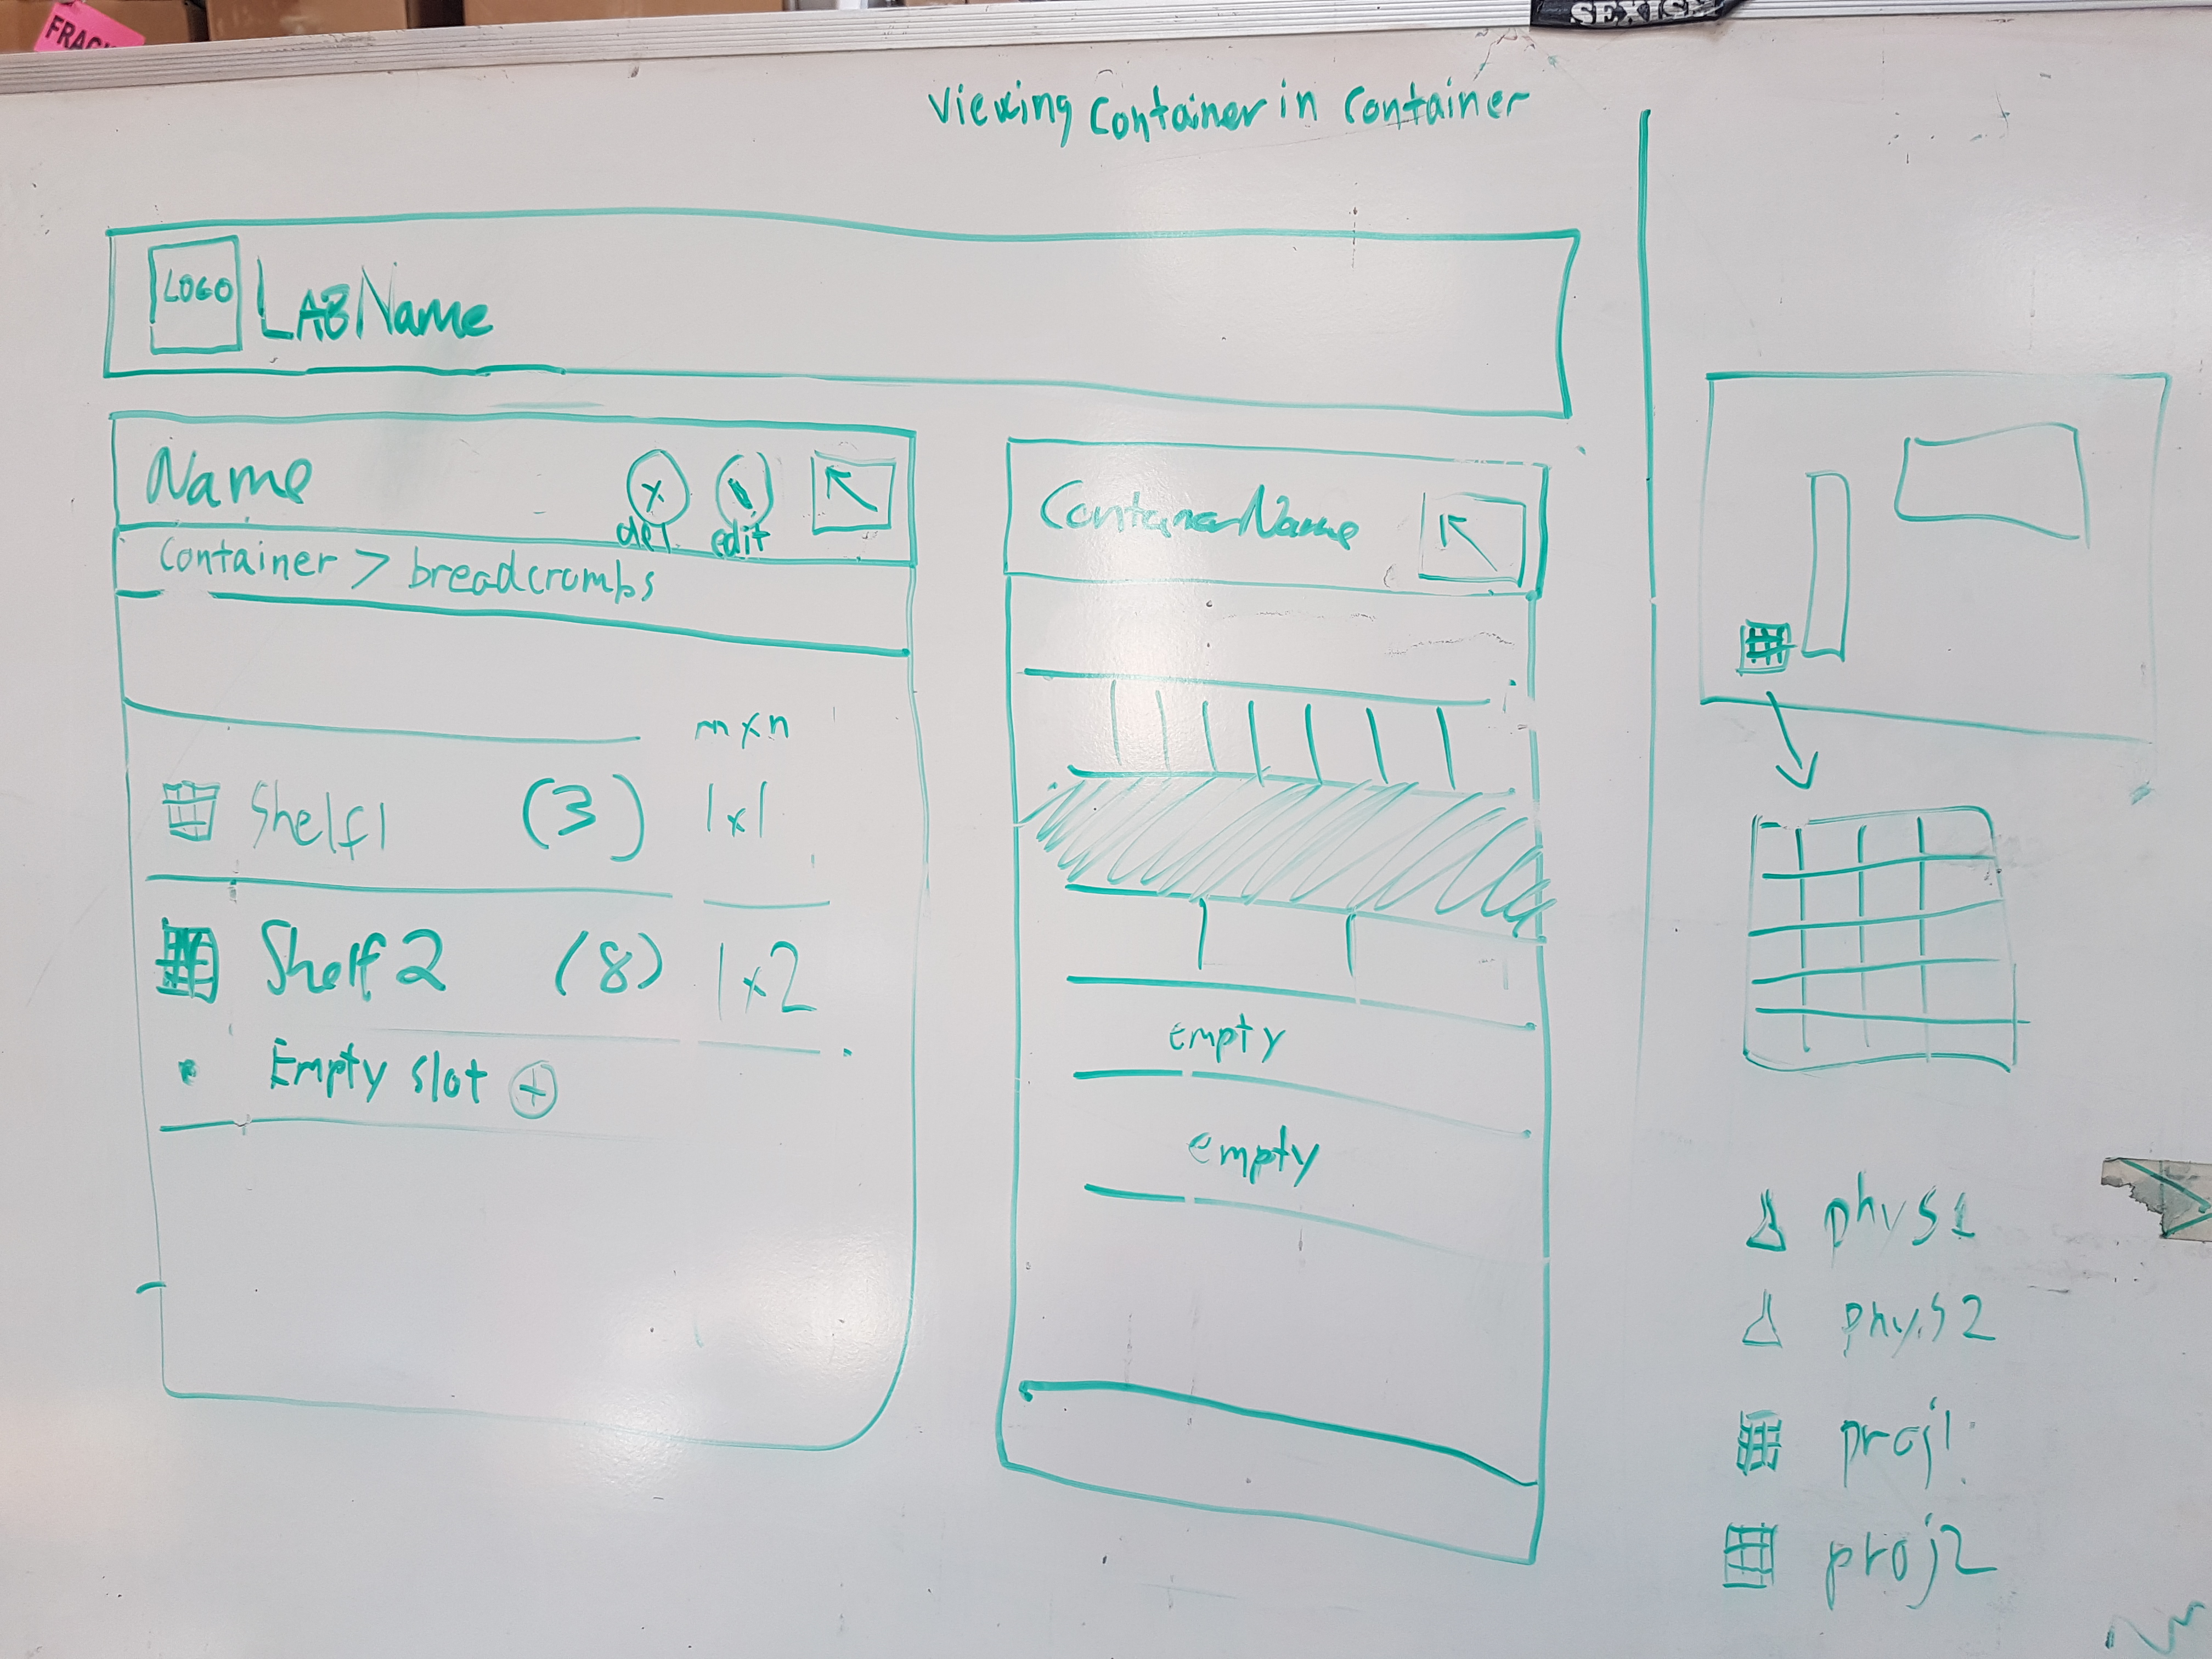 FRAG
SEXISM
Viewing Container in Container
LOGO
LAB Name
Name
x
del.
edit
Container > breadcrombs
mxn
Shelf1 (3) 1x1
Shelf 2 (8) 1x2
Empty slot +
Container Name
empty
empty
phys1
phys2
proj1
proj2